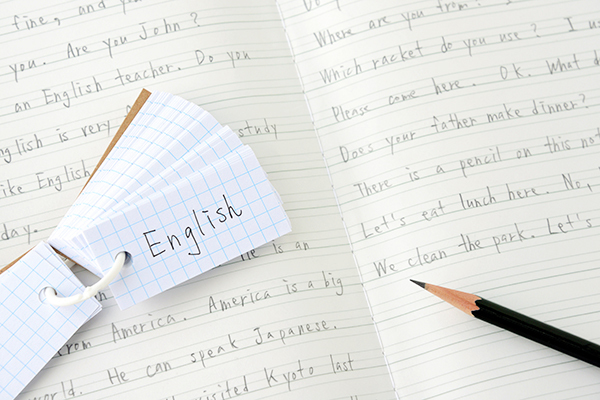 fine, and you?
you. Are you John?
an English teacher. Do you
English is very
study
like English
English
He is an
from America. America is a big
world. He can speak Japanese.
visited Kyoto last
Where are you from?
Which racket do you use? I
Please come here. OK. What
Does your father make dinner?
There is a pencil on this
Let's eat lunch here. No,
We clean the park. Let's